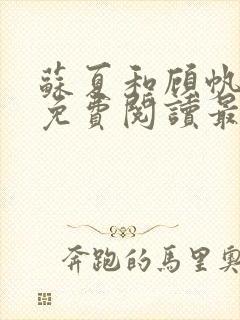 蘇夏和顧帆
免費閱讀最
奔跑的馬里奧